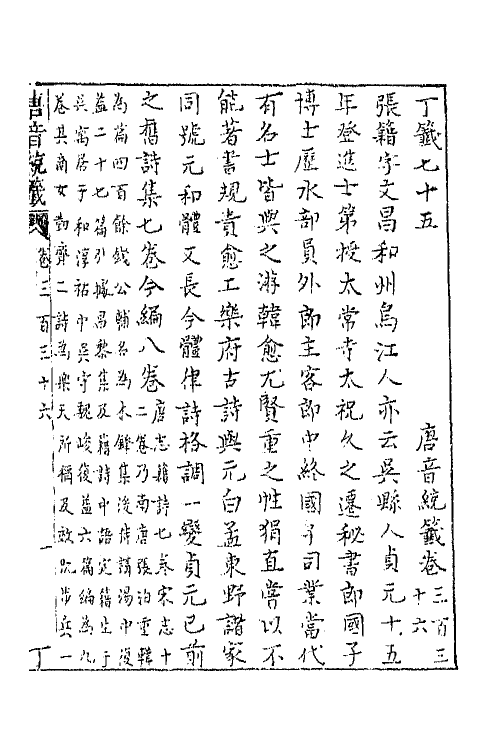 唐音統籤卷三百三十六
丁籤七十五
張籍字文昌和州烏江人亦云吳縣人貞元十五
年登進士第授太常寺太祝久之遷秘書郎國子
博士歷水部員外郎主客郎中終國子司業當代
有名士皆與之游韓愈尤賢重之性狷直嘗以不
能著書規責愈工樂府古詩與元白孟東野諸家
同號元和體又長今體律詩格調一變貞元已前
之舊詩集七卷今編八卷
唐志籍詩七卷宋志十
二卷乃南唐張洎重輯
為篇四百餘錢公輔名為木鐸集後侍講湯中復
益二十七篇引據昌黎集及籍詩中語定籍生于
吳寓居于和淳祐中吳守魏峻復益六篇編為九
卷其商女勤齊二詩為樂天所稱及效阮步兵一
唐音統籤
卷三百三十六
一
丁